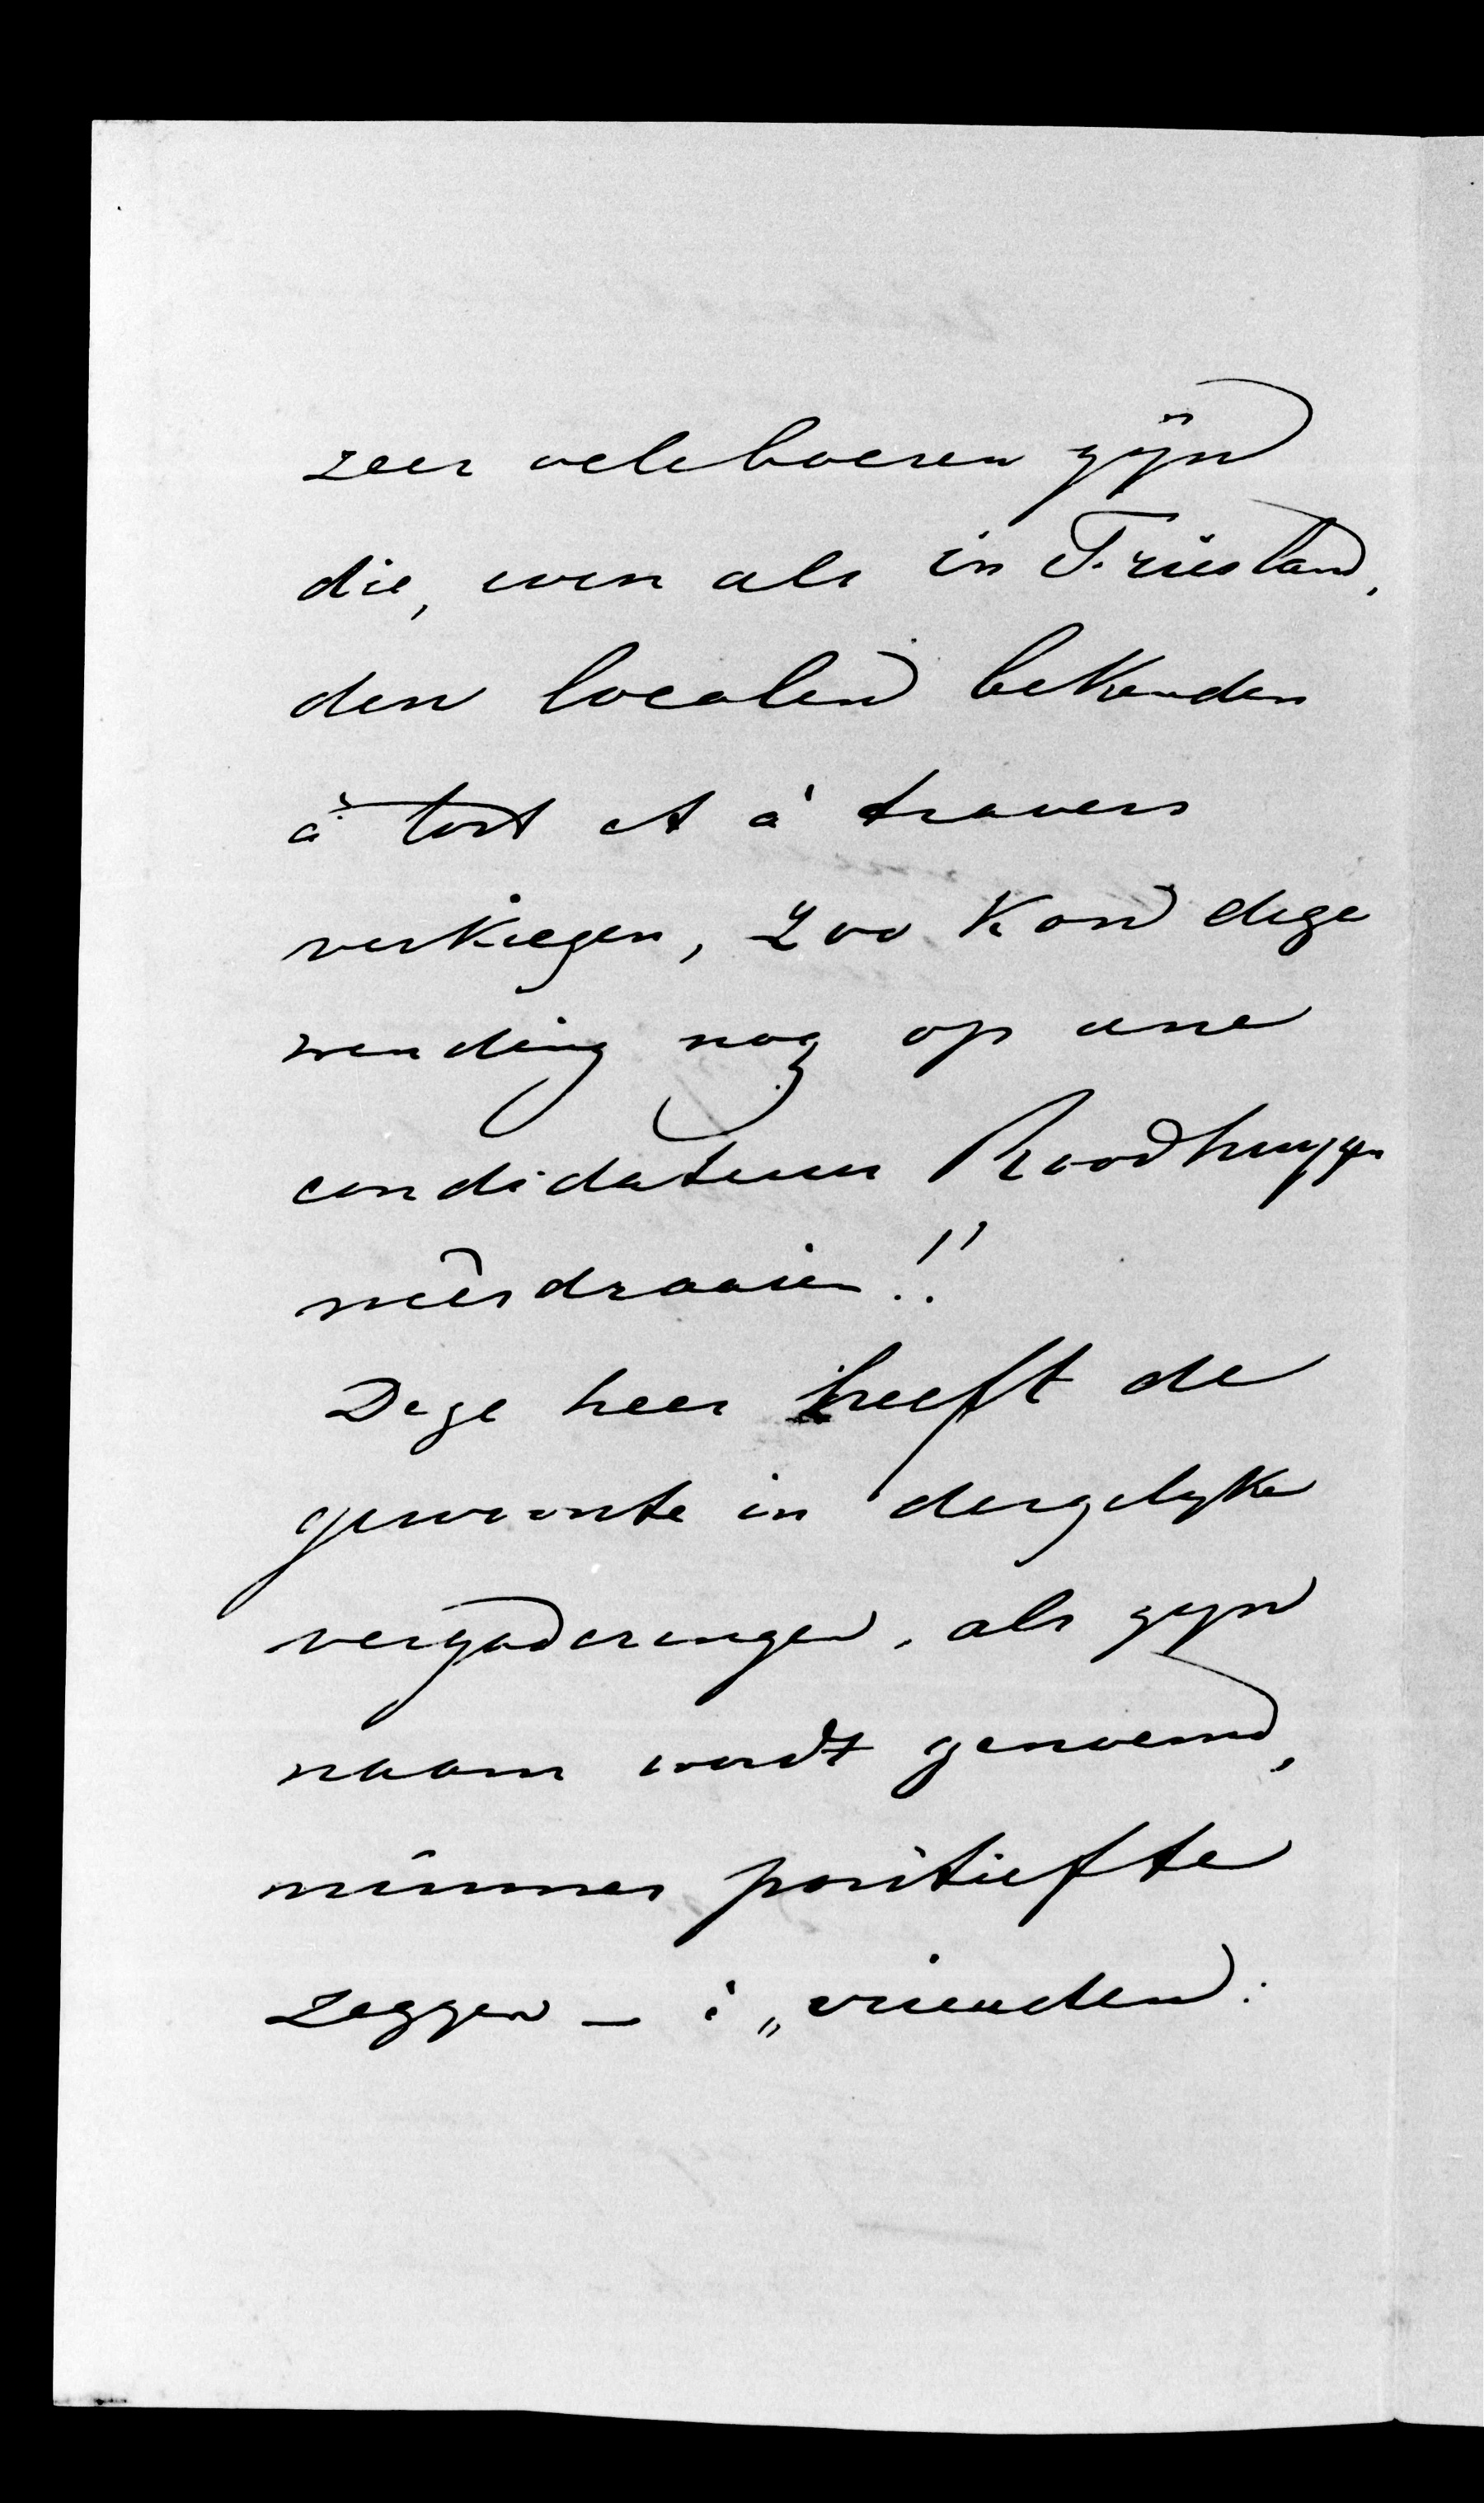 zeer vele boeren zijn
die, even als in Friesland,
den localen bekenden
à tort et à travers
verkiezen, zoo kon deze
wending nog op eene
candidatuur Roodhuyzen
neêrdraaien!!
Deze heer heeft de
gewoonte in dergelyke
vergaderingen, als zyn
naam wordt genoemd,
nimmer positief te
zeggen – : „vrienden: